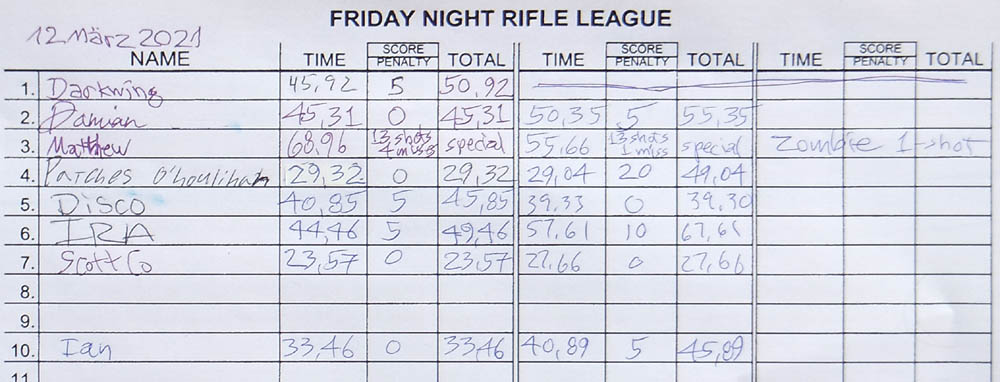 FRIDAY NIGHT RIFLE LEAGUE
12 März 2021
NAME TIME SCORE PENALTY TOTAL TIME SCORE PENALTY TOTAL TIME SCORE PENALTY TOTAL
1. Darkwing 45,92 5 50,92
2. Damian 45,31 0 45,31 50,35 5 55,35
3. Matthew 68,96 13 shots 4 miss special 55,66 13 shots 1 miss special Zombie 1-shot
4. Patches O'houlihan 29,32 0 29,32 29,04 20 49,04
5. DISCO 40,85 5 45,85 39.33 0 39,30
6. IRA 44,46 5 49,46 57,61 10 67,61
7. Scott Co 23,57 0 23,57 27,66 0 27,66
8.
9.
10. Ian 33,46 0 33,46 40,89 5 45,89
11